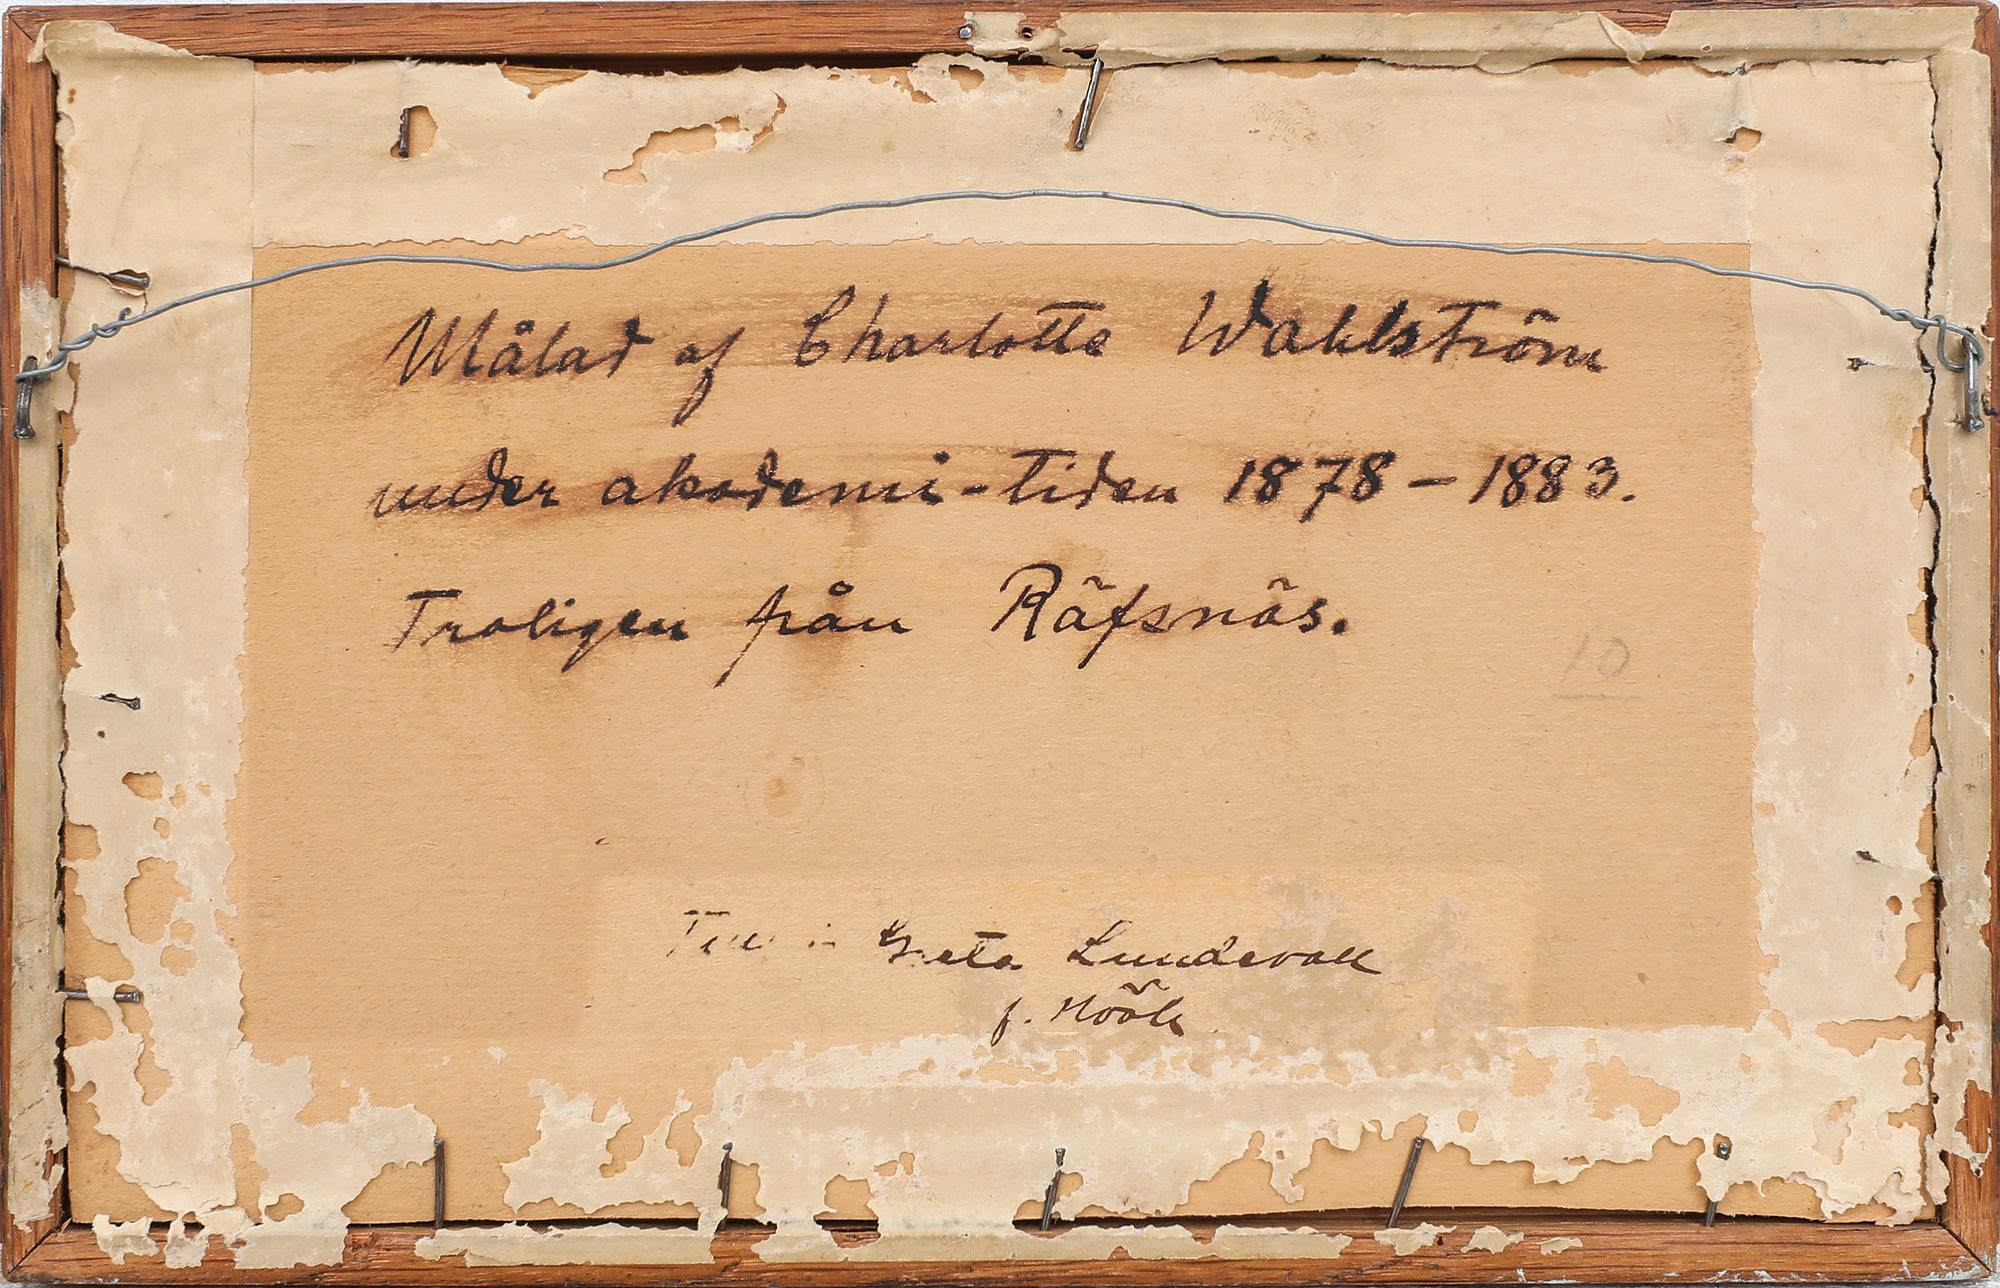 Målad af Charlotte Wahlström
under akademi-tiden 1878 – 1883.
Troligen från Räfsnäs.
10
Greta Lundevall
f. Höök